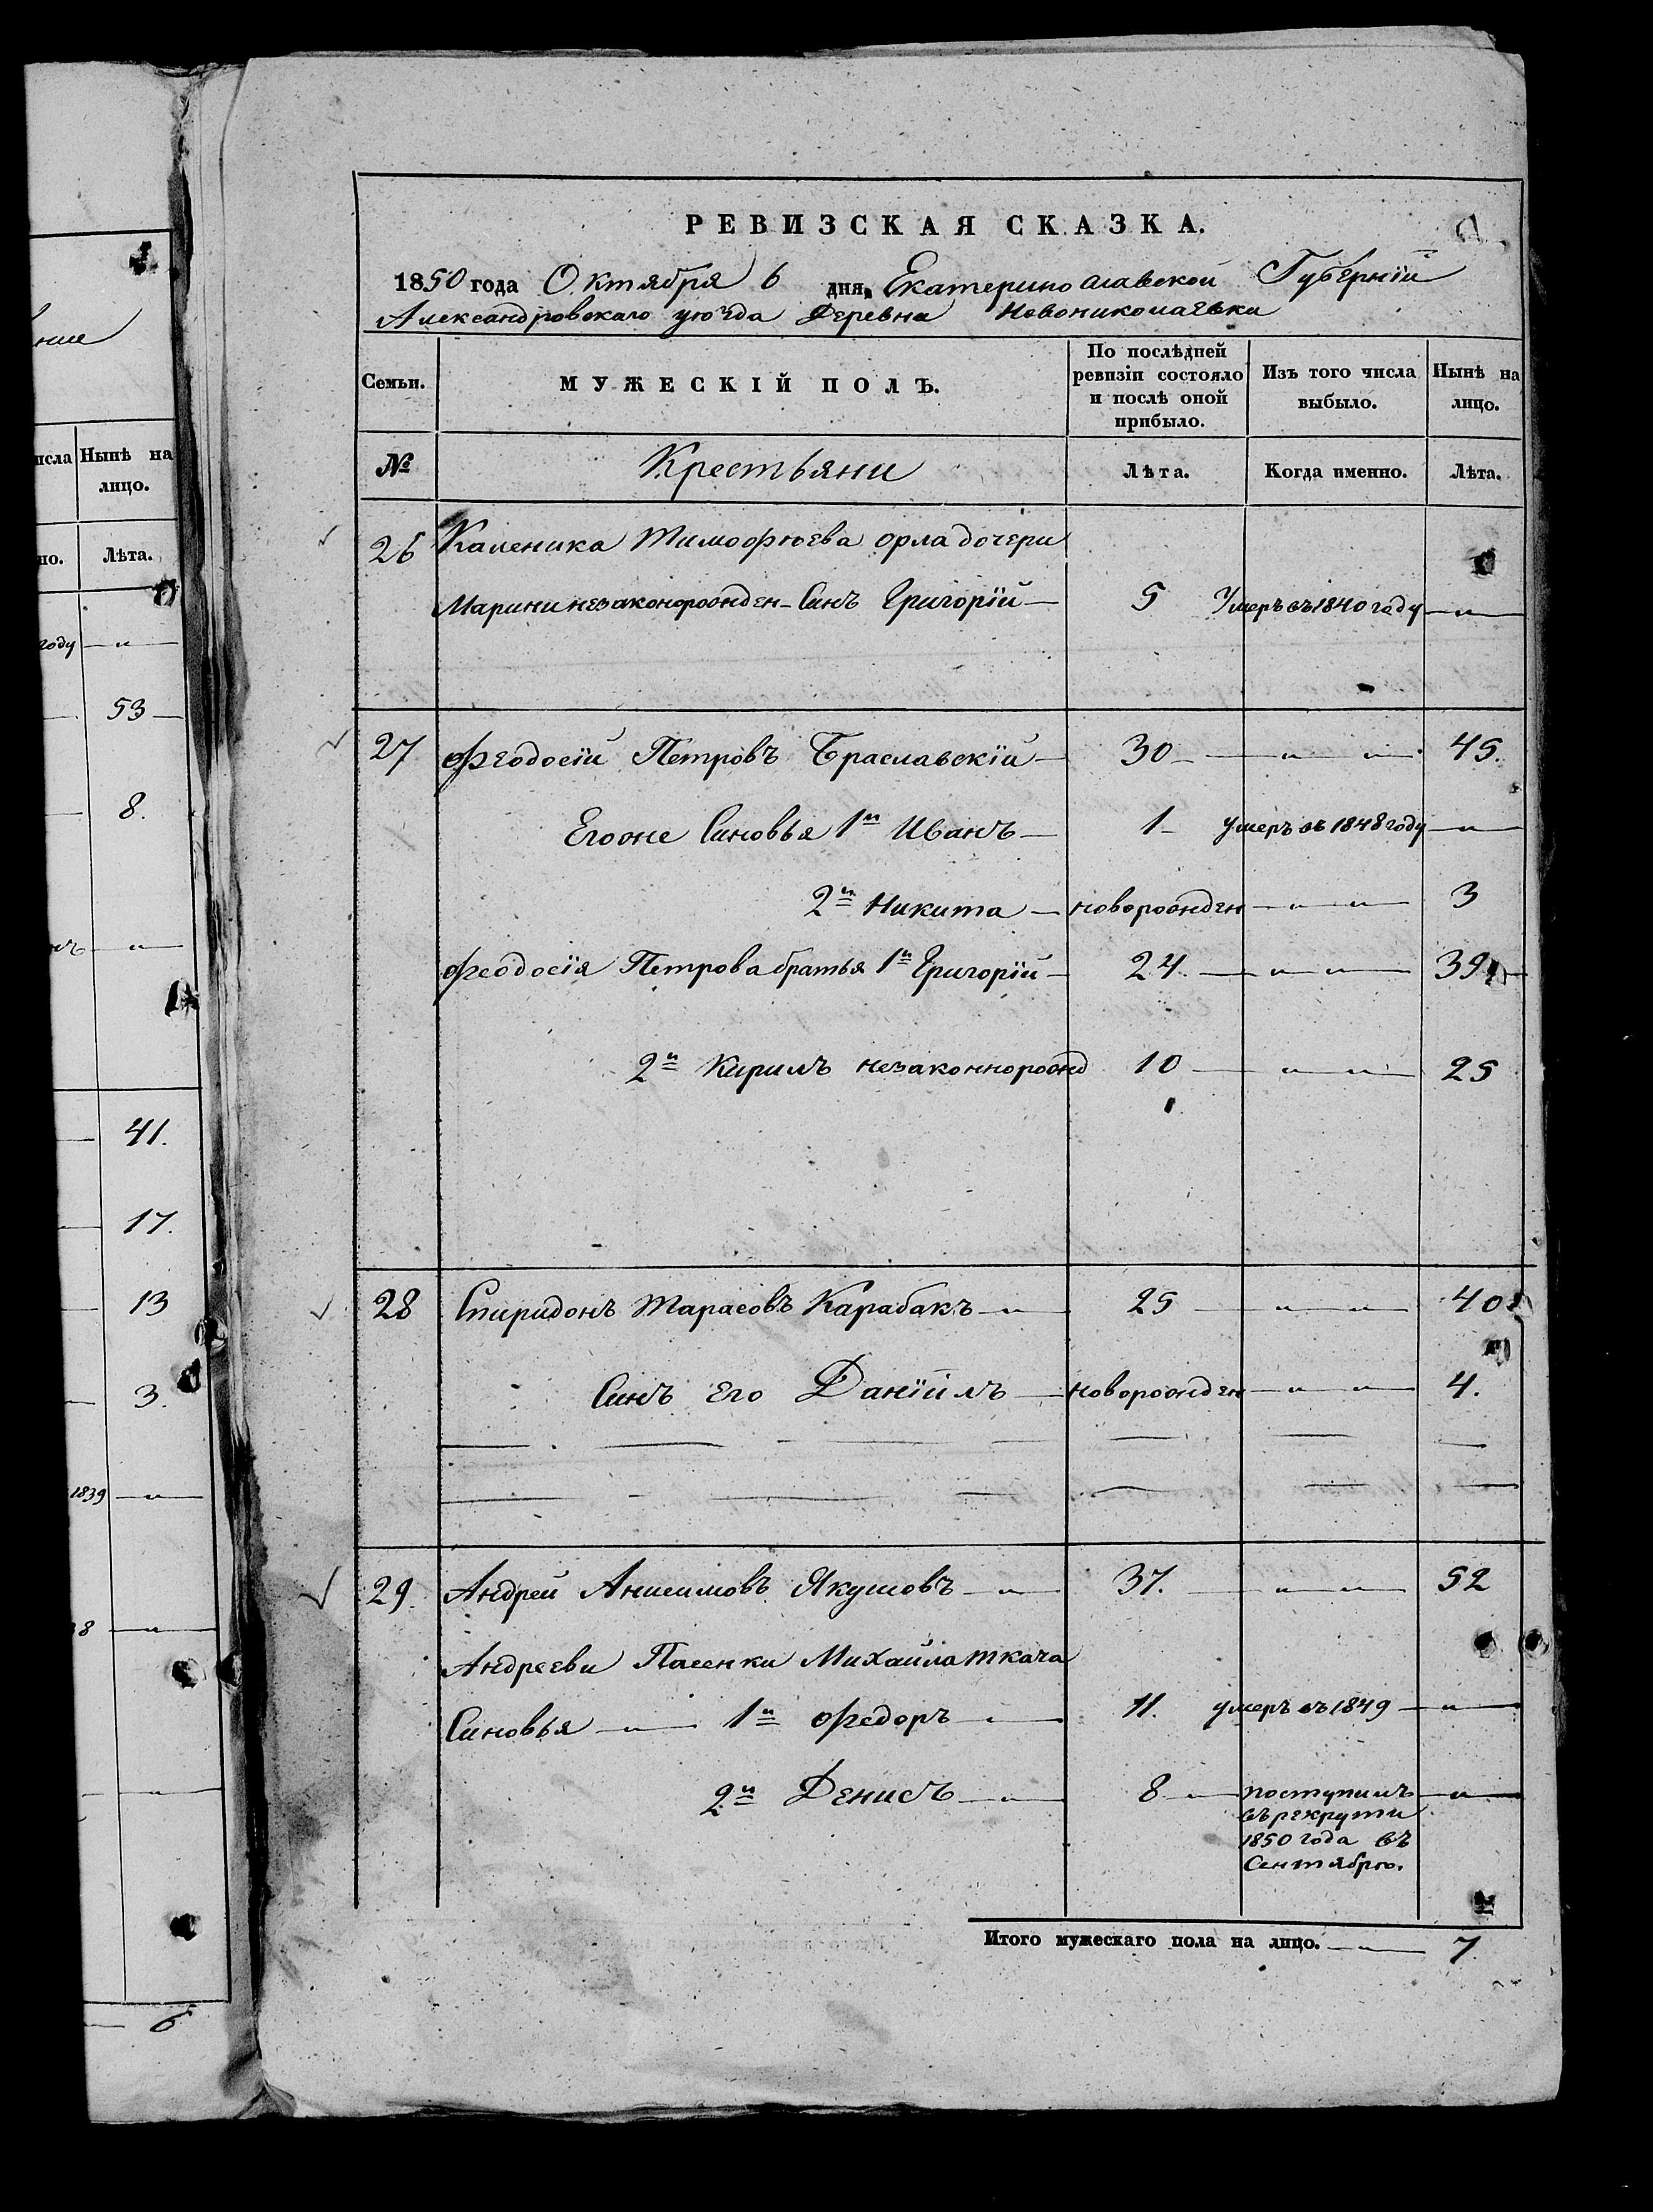 РЕВИЗСКАЯ СКАЗКА.
1850 года Октября 6 дня, Екатеринославской Губерніи
Александровскаго уѣзда Деревна Новониколаевки
Семьи. МУЖЕСКІЙ ПОЛЪ. По послѣдней ревизіи состояло и послѣ оной прибыло. Изъ того числа выбыло. Нынѣ на лицо.
№ Крестьяни Лѣта. Когда именно. Лѣта.
26 Каленика Тимофѣева орла дочери
Марини незаконорожден- Синъ Григорій — 5 Умеръ въ 1840 году — " —
27 Феодосій Петровъ Браславскій — 30 — " " 45.
Егоже Синовья 1й Иванъ — 1 — умеръ въ 1848 году — " —
2й Никита — новорожден — " — " — 3
Феодосія Петрова братья 1й Григорій — 24. — " — " — 39
2й Кирилъ незаконнорожд 10 — " — " — 25
28 Спиридонъ Тарасовъ Карабакъ — " — 25 — " — " — 40
Синъ Его Даніилъ — новорожден — " — " — 4.
29. Андрей Анисимовъ Якушовъ — " — 37. — " — " — 52
Андрееви Пасенки Михайла ткача
Синовья — " — 1й Федоръ — " — 11. умеръ въ 1849 — " —
2й Денисъ — " — 8 — " — поступилъ — " —
въ рекрути
1850 года въ
Сентябрѣ.
Итого мужескаго пола на лицо. — " — 7.
исла Нынѣ на
лицо.
но. Лѣта.
году — " —
53 —
8.
— " —
41.
17.
13
3.
1839 — " —
8 — " —
— " —
6